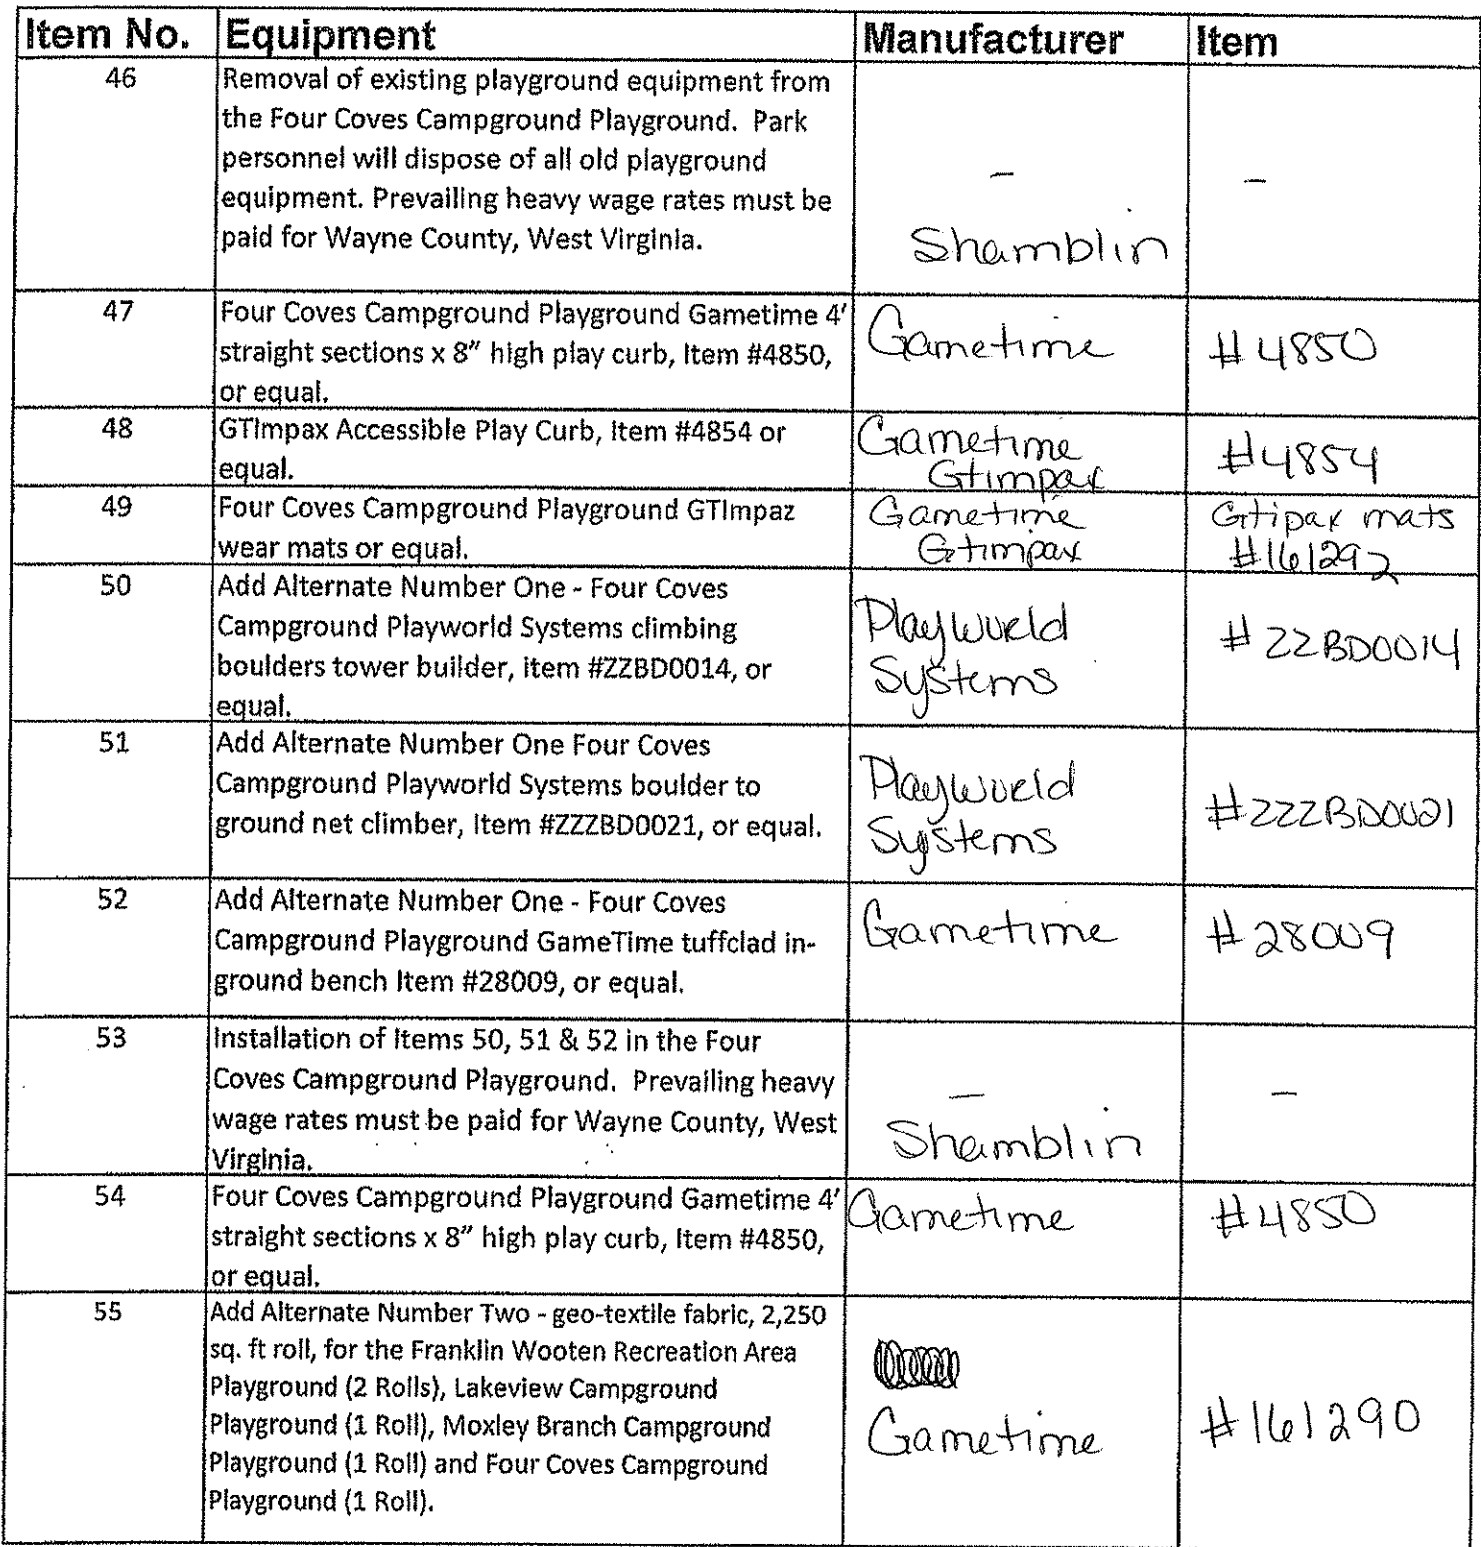 Item No. Equipment Manufacturer Item
46 Removal of existing playground equipment from
the Four Coves Campground Playground. Park
personnel will dispose of all old playground
equipment. Prevailing heavy wage rates must be - -
paid for Wayne County, West Virginia. Shamblin
47 Four Coves Campground Playground Gametime 4'
straight sections x 8" high play curb, Item #4850, Gametime #4850
or equal.
48 GTImpax Accessible Play Curb, Item #4854 or Gametime #4854
equal. Gtimpax
49 Four Coves Campground Playground GTImpaz Gametime Gtipax mats
wear mats or equal. Gtimpax #161292
50 Add Alternate Number One - Four Coves
Campground Playworld Systems climbing Playworld #ZZBD0014
boulders tower builder, item #ZZBD0014, or Systems
equal.
51 Add Alternate Number One Four Coves
Campground Playworld Systems boulder to Playworld #ZZZBD0021
ground net climber, Item #ZZZBD0021, or equal. Systems
52 Add Alternate Number One - Four Coves
Campground Playground GameTime tuffclad in- Gametime #28009
ground bench Item #28009, or equal.
53 Installation of Items 50, 51 & 52 in the Four
Coves Campground Playground. Prevailing heavy
wage rates must be paid for Wayne County, West - -
Virginia. Shamblin
54 Four Coves Campground Playground Gametime 4' Gametime #4850
straight sections x 8" high play curb, Item #4850,
or equal.
55 Add Alternate Number Two - geo-textile fabric, 2,250
sq. ft roll, for the Franklin Wooten Recreation Area
Playground (2 Rolls), Lakeview Campground
Playground (1 Roll), Moxley Branch Campground Gametime #161290
Playground (1 Roll) and Four Coves Campground
Playground (1 Roll).